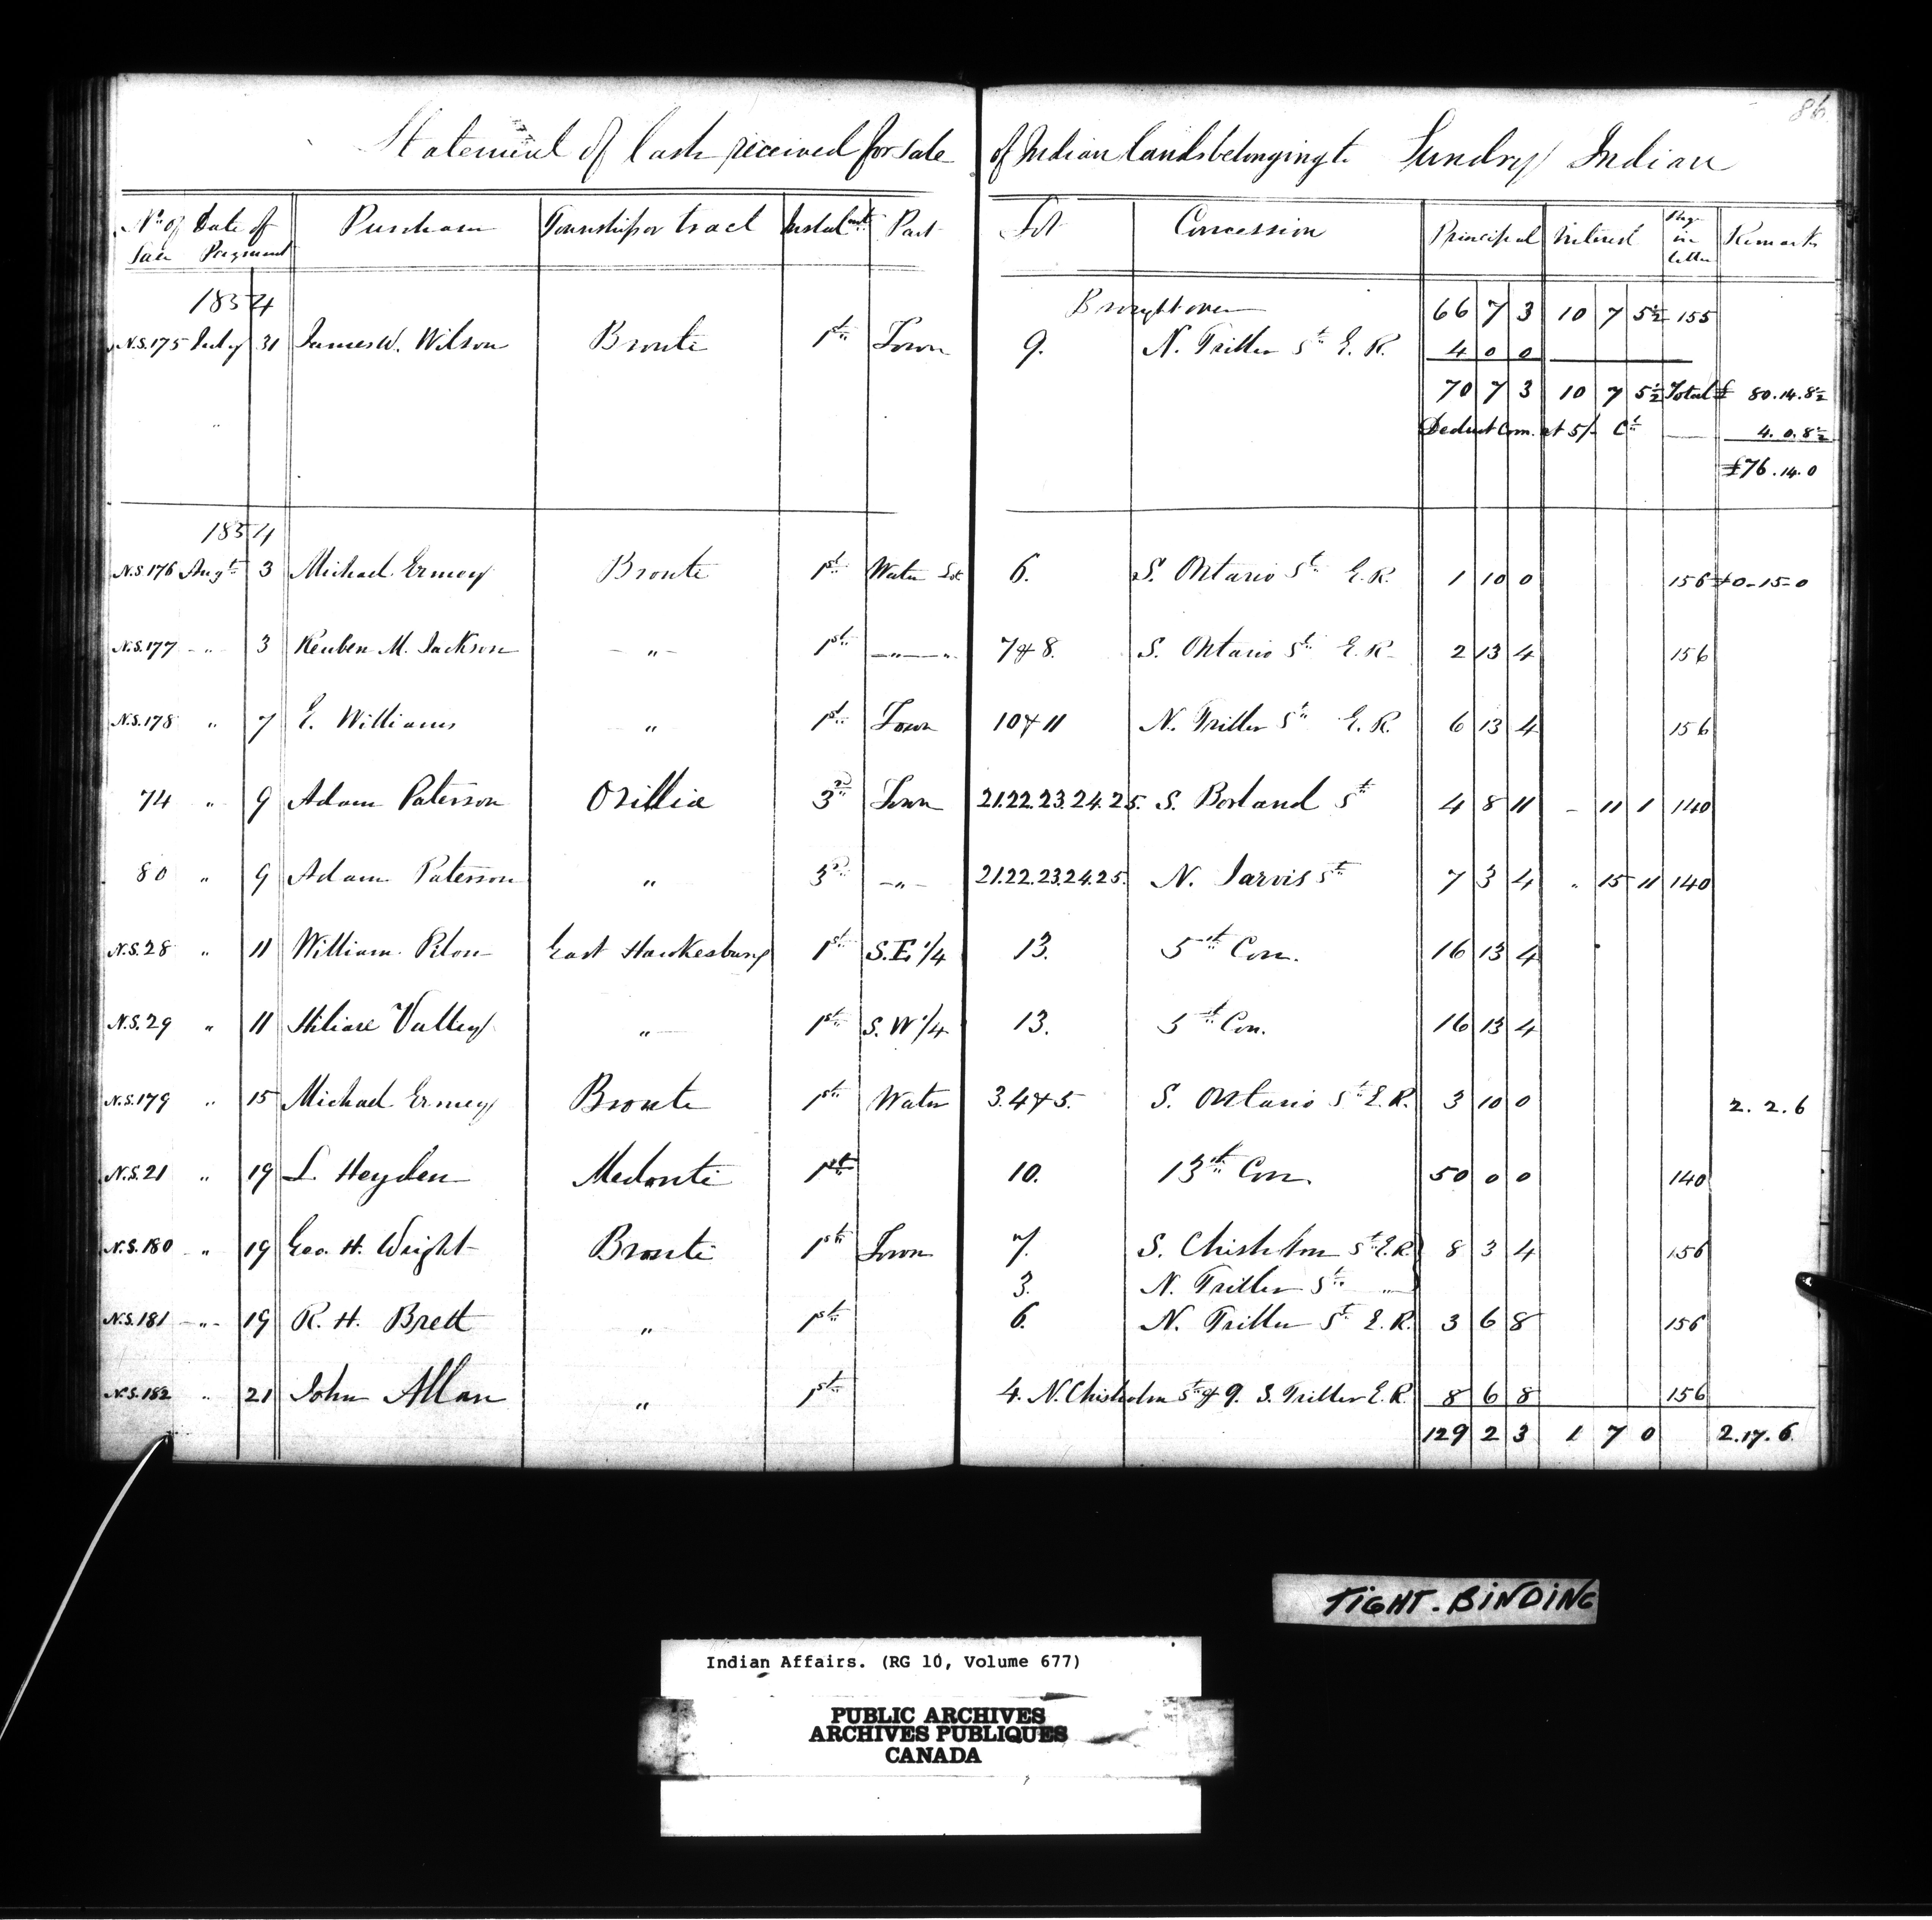 86
Statement of Cash received for sale of Indian lands belonging to Sundry Indian
No. of Sale Date of Payment Purchaser Township or tract Instalmt. Part Lot Concession Principal Interest Pag in letter Remarks
1854 Brought over 66 7 3 10 7 5½ 155
N.S. 175 July 31 James W. Wilson Bronte 1st Town 9. N. Triller St. E. R. 4 0 0
70 7 3 10 7 5½ Total £ 80.14.8½
Deduct Com. at 5/- Ct. 4. 0. 8½
£76.14.0
1854
N.S. 176 Augt. 3 Michael Ermey Bronte 1st Water Lot 6. S. Ontario St. E. R. 1 10 0 156 £0-15-0
N.S. 177 -"- 3 Reuben M. Jackson -"- 1st -"- -"- 7 & 8. S. Ontario St. E. R. 2 13 4 156
N.S. 178 " 7 E. Williams " 1st Town 10 & 11 N. Triller St. E. R. 6 13 4 156
74 " 9 Adam Paterson Orillia 3d Town 21.22.23.24.25. S. Borland St. 4 8 11 - 11 1 140
80 " 9 Adam Paterson " 3d -"- 21.22.23.24.25. N. Jarvis St. 7 3 4 " 15 11 140
N.S. 28 " 11 William Pilon East Hawkesbury 1st S.E. 1/4 13. 5th Con. 16 13 4
N.S. 29 " 11 Hiliare Valley " 1st S.W 1/4 13. 5th Con. 16 13 4
N.S. 179 " 15 Michael Ermey Bronte 1st Water 3.4 & 5. S. Ontario St. E. R. 3 10 0 2. 2. 6
N.S. 21 " 19 L. Heyden Medonte 1st 10. 13th Con. 50 0 0 140
N.S. 180 " 19 Geo. H. Wright Bronte 1st Town 7. S. Chisholm St. E. R. 8 3 4 156
3. N. Triller St. "
N.S. 181 -"- 19 R. H. Brett " 1st 6. N. Triller St. E. R. 3 6 8 156
N.S. 182 " 21 John Allan " 1st 4. N. Chisholm St. & 9. S. Triller E. R. 8 6 8 156
129 2 3 1 7 0 2.17.6
TIGHT-BINDING
Indian Affairs. (RG 10, Volume 677)
PUBLIC ARCHIVES
ARCHIVES PUBLIQUES
CANADA